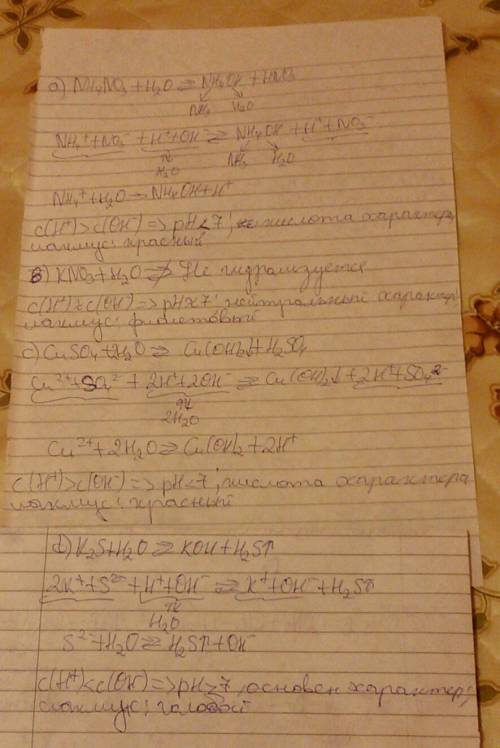 a) NH₄NO₃ + H₂O ⇄ NH₄OH + HNO₃
NH₃ H₂O
NH₄⁺ + NO₃⁻ + H⁺ + OH⁻ ⇄ NH₄OH + H⁺ + NO₃⁻
H₂O NH₃ H₂O
NH₄⁺ + H₂O → NH₄OH + H⁺
c(H⁺) > c(OH⁻) => pH < 7; кислота характер,
лакмус: красный
в) KNO₃ + H₂O ⇄ Не гидрализуется
c(H⁺) ≈ c(OH⁻) => pH ≈ 7: нейтральный характер
лакмус: фиолетовый
c) CuSO₄ + 2H₂O ⇄ Cu(OH)₂↓ + H₂SO₄
Cu²⁺ + SO₄²⁻ + 2H⁺ + 2OH⁻ ⇄ Cu(OH)₂↓ + 2H⁺ + SO₄²⁻
2H₂O
Cu²⁺ + 2H₂O ⇄ Cu(OH)₂ + 2H⁺
c(H⁺) > c(OH⁻) => pH < 7; кислота характера
лакмус: красный
d) K₂S + H₂O ⇄ KOH + H₂S↑
2K⁺ + S²⁻ + H⁺ + OH⁻ ⇄ K⁺ + OH⁻ + H₂S↑
H₂O
S²⁻ + H₂O ⇄ H₂S↑ + OH⁻
c(H⁺) < c(OH⁻) => pH > 7, основен характер;
лакмус: голобой